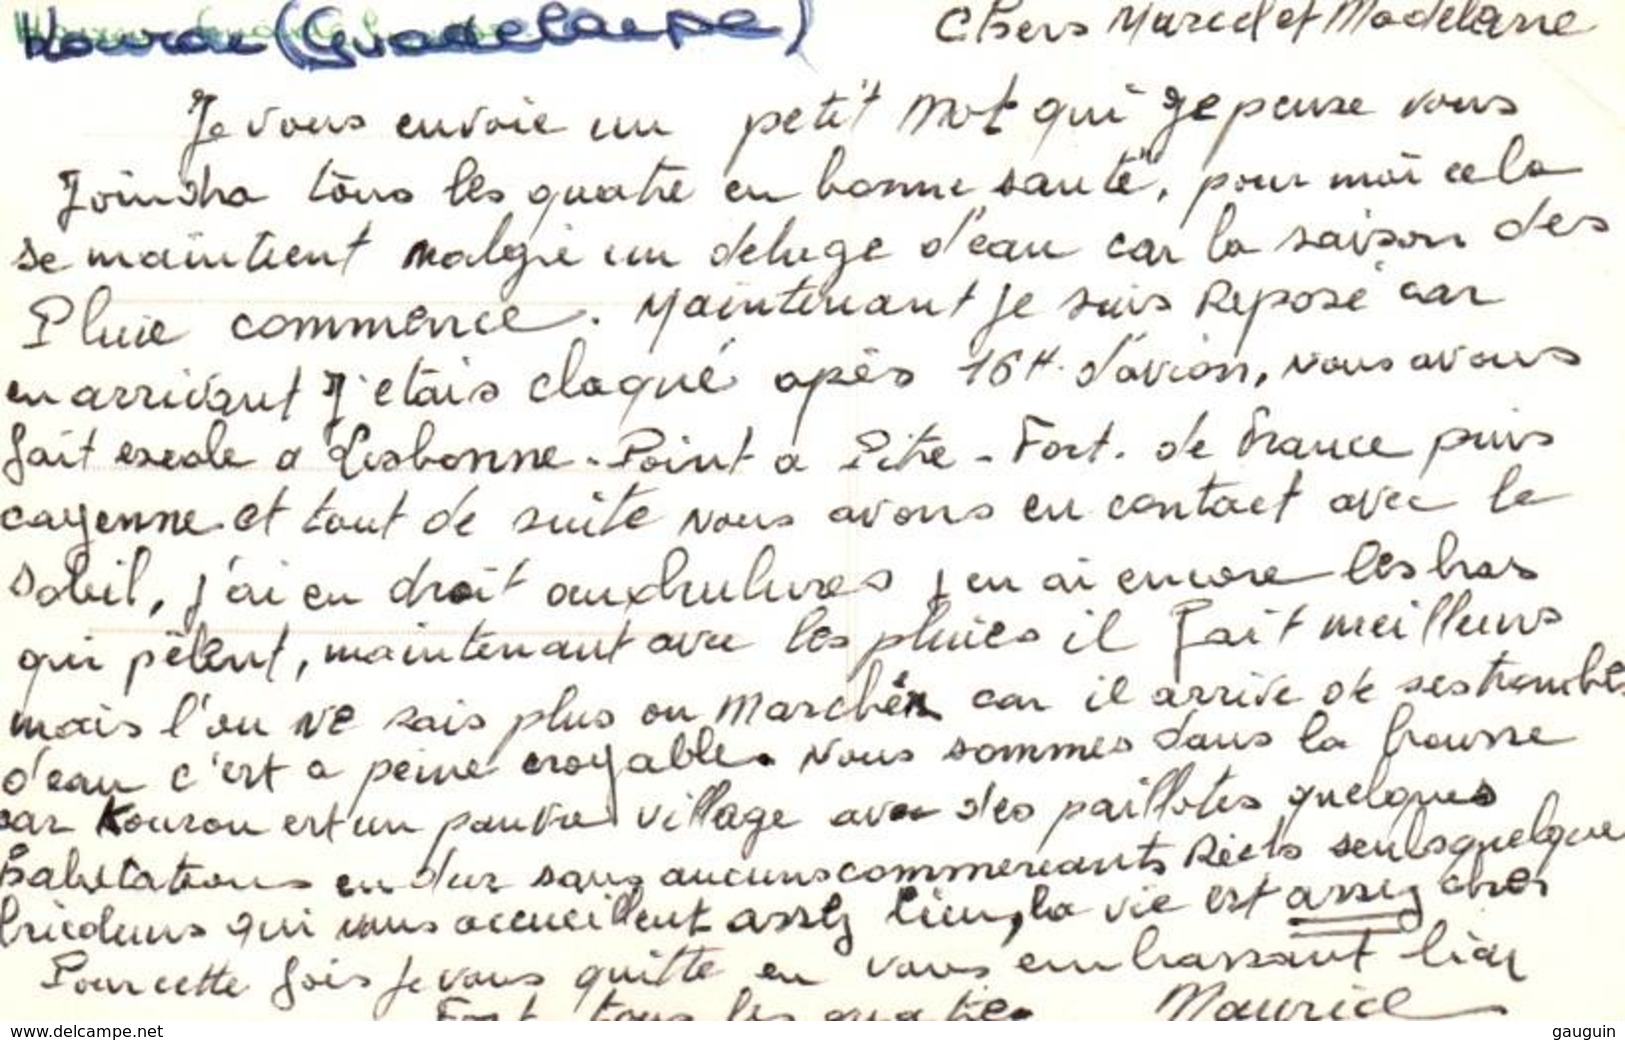 Kourou (Guadeloupe)
Chers Marcel et Madelaine
Je vous envoie un petit mot qui je pense vous
Joindra tous les quatre en bonne santé, pour moi cela
se maintient malgré un deluge d'eau car la saison des
Pluie commence. Maintenant je suis Reposé car
en arrivant J'etais claqué après 16H. d'avion, nous avons
fait escale a Lisbonne. Point a Pitre - Fort. de France puis
cayenne et tout de suite nous avons eu contact avec le
soleil, j'ai eu droit aux brulures j en ai encore les bras
qui pèlent, maintenant avec les pluies il fait meilleurs
mais l'on ne sais plus ou marchér car il arrive de ses trombes
d'eau c'est a peine croyable. Nous sommes dans la brousse
car Kourou est un pauvre village avec des paillotes quelques
habitations en dur sans aucuns commercants Réels seuls quelque
bricoleurs qui vous accueillent assez bien, la vie est assez cher
Pour cette fois je vous quitte en vous embrassant bien
Fort tous les quatre. Maurice
www.delcampe.net
gauguin